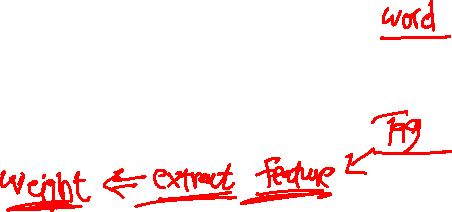 word
Tag
weight ← extract feature